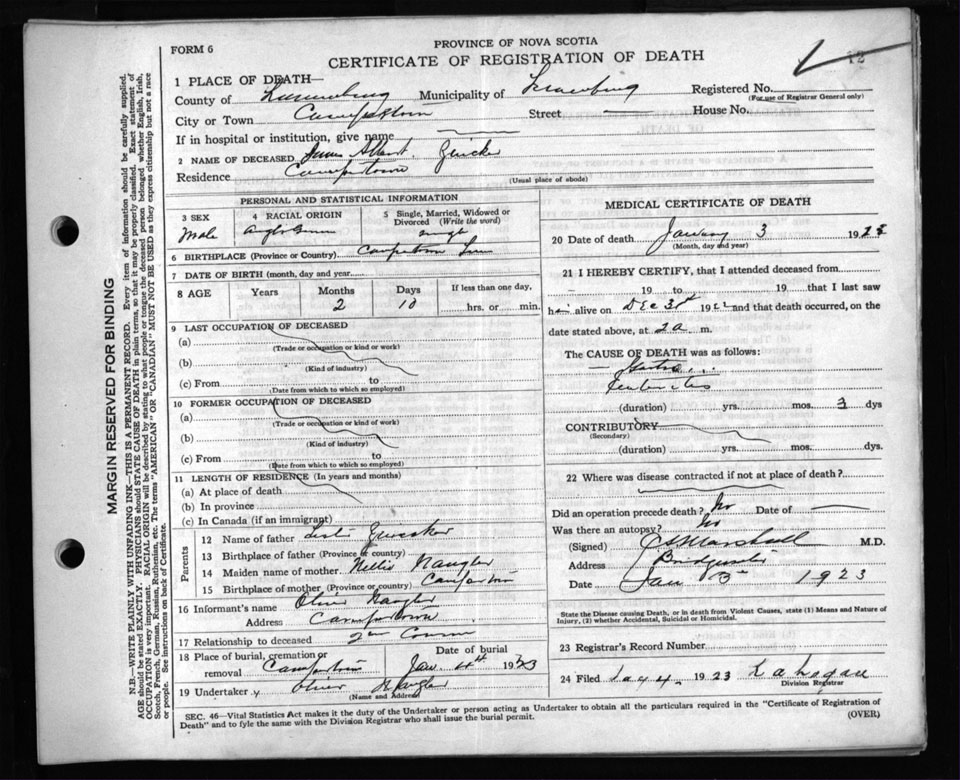 FORM 6
PROVINCE OF NOVA SCOTIA
CERTIFICATE OF REGISTRATION OF DEATH
12
1 PLACE OF DEATH—
County of Lunenburg Municipality of Lunenburg Registered No.
(For use of Registrar General only)
City or Town Camperdown Street — House No.
If in hospital or institution, give name
2 NAME OF DECEASED James Albert
Residence Camperdown
(Usual place of abode)
PERSONAL AND STATISTICAL INFORMATION
3 SEX
Male
4 RACIAL ORIGIN
5 Single, Married, Widowed or Divorced (Write the word)
single
6 BIRTHPLACE (Province or Country) Camperdown Lun
7 DATE OF BIRTH (month, day and year)
8 AGE Years Months Days If less than one day,
2 10 hrs. or min.
9 LAST OCCUPATION OF DECEASED
(a)
(Trade or occupation or kind or work)
(b)
(Kind of industry)
(c) From to
(Date from which to which so employed)
10 FORMER OCCUPATION OF DECEASED
(a)
(Trade or occupation or kind of work)
(b)
(Kind of industry)
(c) From to
(Date from which to which so employed)
11 LENGTH OF RESIDENCE (In years and months)
(a) At place of death
(b) In province
(c) In Canada (if an immigrant)
Parents
12 Name of father
13 Birthplace of father (Province or country)
14 Maiden name of mother Nellie Naugler
15 Birthplace of mother (Province or country) Camperdown
16 Informant's name Oliver Naugler
Address Camperdown
17 Relationship to deceased 2nd Cousin
18 Place of burial, cremation or removal Camperdown
Date of burial
Jan 4th 1923
19 Undertaker Oliver Naugler
(Name and Address)
MEDICAL CERTIFICATE OF DEATH
20 Date of death January 3 1923
(Month, day and year)
21 I HEREBY CERTIFY, that I attended deceased from
19 to 19 that I last saw
him alive on Dec 30th 1922 and that death occurred, on the
date stated above, at 2a m.
The CAUSE OF DEATH was as follows:
(duration) yrs. mos. 3 dys
CONTRIBUTORY
(Secondary)
(duration) yrs. mos. dys
22 Where was disease contracted if not at place of death?
Did an operation precede death? No Date of
Was there an autopsy? No
(Signed) Marshall M.D.
Address Bridgewater
Date Jan 3rd 1923
State the Disease causing Death, or in death from Violent Causes, state (1) Means and Nature of
Injury, (2) whether Accidental, Suicidal or Homicidal.
23 Registrar's Record Number
24 Filed Jan 4 1923
Division Registrar
SEC. 46—Vital Statistics Act makes it the duty of the Undertaker or person acting as Undertaker to obtain all the particulars required in the "Certificate of Registration of
Death" and to fyle the same with the Division Registrar who shall issue the burial permit.
(OVER)
MARGIN RESERVED FOR BINDING
N.B.—WRITE PLAINLY WITH UNFADING INK—THIS IS A PERMANENT RECORD. Every item of information should be carefully supplied.
AGE should be stated EXACTLY. PHYSICIANS should STATE CAUSE OF DEATH in plain terms, so that it may be properly classified. Exact statement of
OCCUPATION is very important. RACIAL ORIGIN will be described by stating to what people or tongue the deceased person belonged whether English, Irish,
Scotch, French, German, Russian, Ruthenian, etc. The terms "AMERICAN" OR "CANADIAN" MUST NOT BE USED as they express citizenship but not a race
or people. See instructions on back of Certificate.